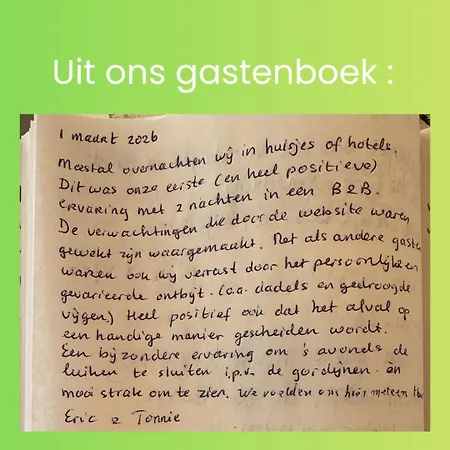 Uit ons gastenboek :
1 maart 2026
Meestal overnachten wij in huisjes of hotels.
Dit was onze eerste (en heel positieve)
ervaring met 2 nachten in een B&B.
De verwachtingen die door de website waren
gewekt zijn waargemaakt. Net als andere gaste
waren ook wij verrast door het persoonlijk en
gevarieerde ontbijt. (o.a. dadels en gedroogde
vijgen) Heel positief ook dat het afval op
een handige manier gescheiden wordt.
Een bijzondere ervaring om 's avonds de
luiken te sluiten i.p.v. de gordijnen. èn
mooi strak om te zien. We voelden ons hier meteen
Eric & Tonnie